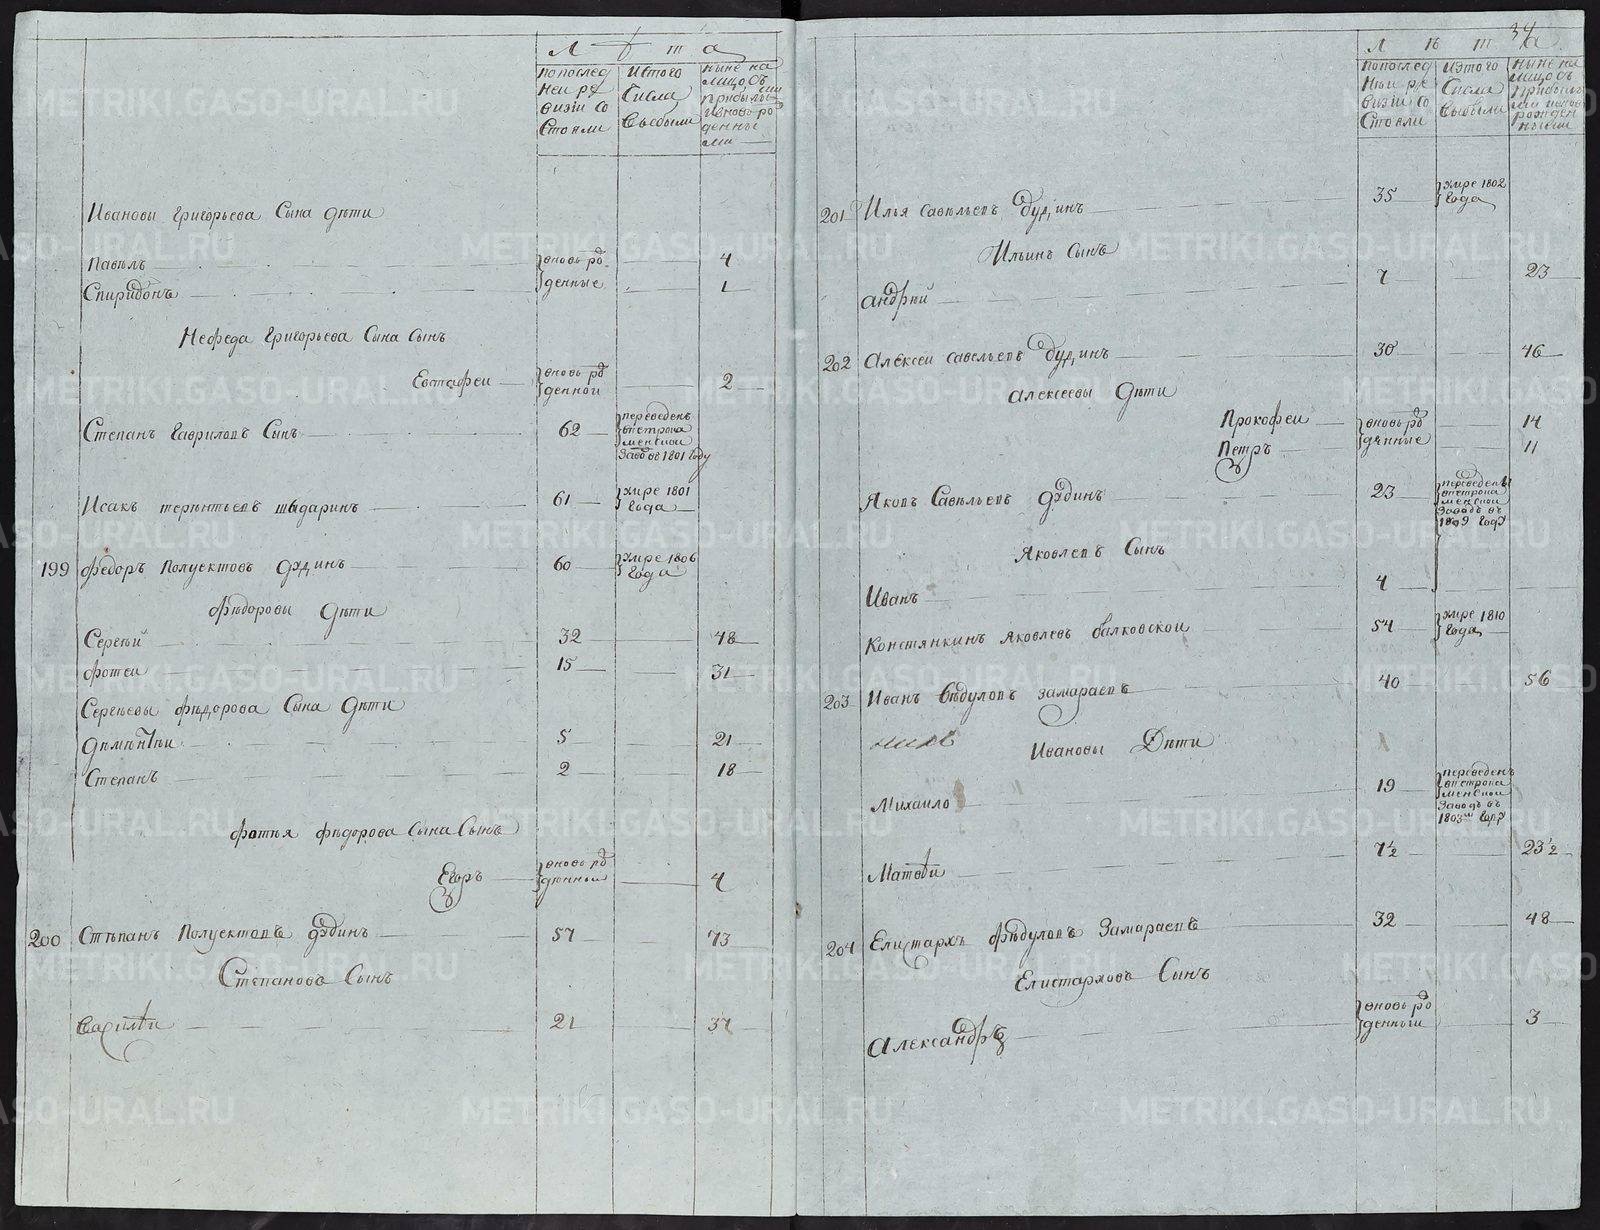 Л ѣ т а
по послед
ней ре
визіи со
стояли
Изтого
Числа
Выбыли
ныне на
лицо съ
прибылы
ми
и вновь ро
денны
ми
Иванови григорьева Сына дѣти
Павѣлъ вновь ро 4
Спиридонъ денные 1
Нефеда Григорьева Сына Сынъ
Евстафеи вновь ро
денной 2
Степанъ гавриловъ Сынъ 62 переведенъ
менской
Заводъ в 1801 году
Исакъ терентьевъ шадаринъ 61 умре 1801
года
199 федоръ Полуектовъ дудинъ 60 умре 1806
года
Фѣдоровы дѣти
Сергѣй 32 48
фотеи 15 31
Сергѣевы фѣдорова Сына Дѣти
Дѣмѣнтѣи 5 21
Степанъ 2 18
фотѣя фѣдорова Сына Сынъ
Егоръ вновь ро
денныи 4
200 Стѣпанъ Полуектовъ дудинъ 57 73
Степановъ Сынъ
Василѣи 21 37
34
Л ѣ т а
по послед
нѣи ре
визіи со
стояли
Изтого
Числа
Выбыли
ныне на
лицо съ
прибылы
ми и внов
рожден
ными
201 Илья савѣльевъ Дудинъ 35 умре 1802
года
Ильинъ Сынъ
андрѣй 7 23
202 Алексеи савельевъ Дудинъ 30 46
алексеевы дѣти
Прокофеи вновь ро 14
Петръ денные 11
Яковъ Савѣльевъ дудинъ 23 переведенъ
менской
Заводъ въ
1809 году
Яковлевъ Сынъ
Иванъ 4
Констянкинъ Яковлевъ балковской 54 умре 1810
года
203 Иванъ Фѣдуловъ замараевъ 40 56
Ивановы Дѣти
Михаило 19 переведенъ
менской
Заводъ въ
1803м году
Матвѣи 7½ 23½
204 Елистархъ Фѣдуловъ Замараевъ 32 48
Елистарховъ Сынъ
Александръ вновь ро
денныи 3
METRIKI.GASO-URAL.RU